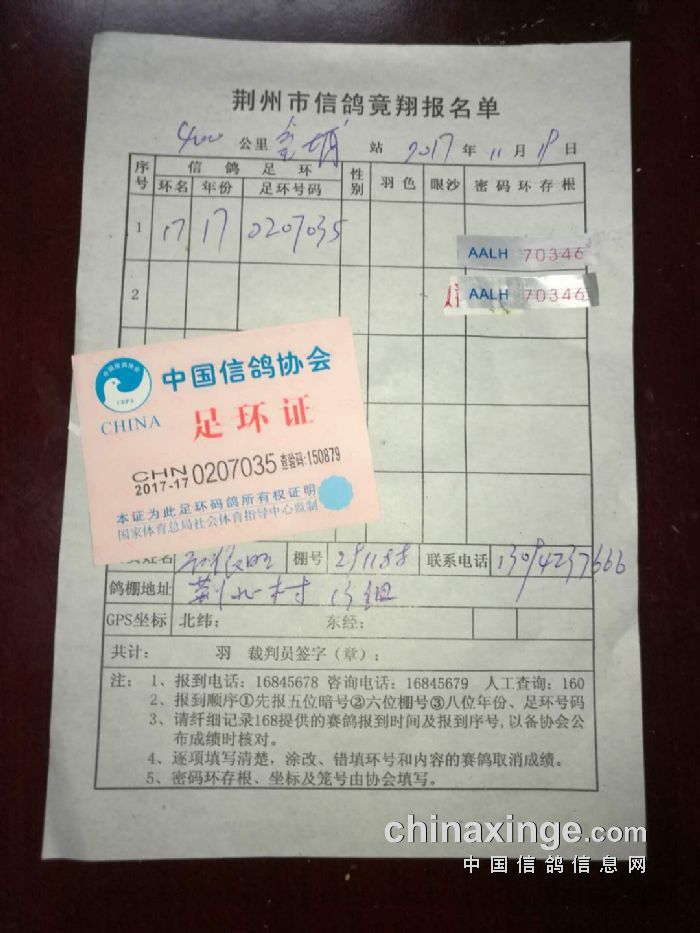 荆州市信鸽竟翔报名单
400 公里 站 2017 年 11 月 19 日
序号 信鸽足环 性别 羽色 眼沙 密码环存根
环名 年份 足环号码
1 17 17 0207035
AALH 70346
2 AALH 70346
中国信鸽协会
中国信鸽协会
CRPA
CHINA
足环证
CHN
2017-17 0207035 查验码:150879
本证为此足环码鸽所有权证明
国家体育总局社会体育指导中心监制
姓名 棚号 291188 联系电话 13094237666
鸽棚地址 荆北村 13组
GPS坐标 北纬: 东经:
共计: 羽 裁判员签字(章):
注: 1、报到电话:16845678 咨询电话:16845679 人工查询:160
2、报到顺序①先报五位暗号②六位棚号③八位年份、足环号码
3、请纤细记录168提供的赛鸽报到时间及报到序号,以备协会公
布成绩时核对。
4、逐项填写清楚,涂改、错填环号和内容的赛鸽取消成绩。
5、密码环存根、坐标及笼号由协会填写。
chinaxinge.com
中国信鸽信息网